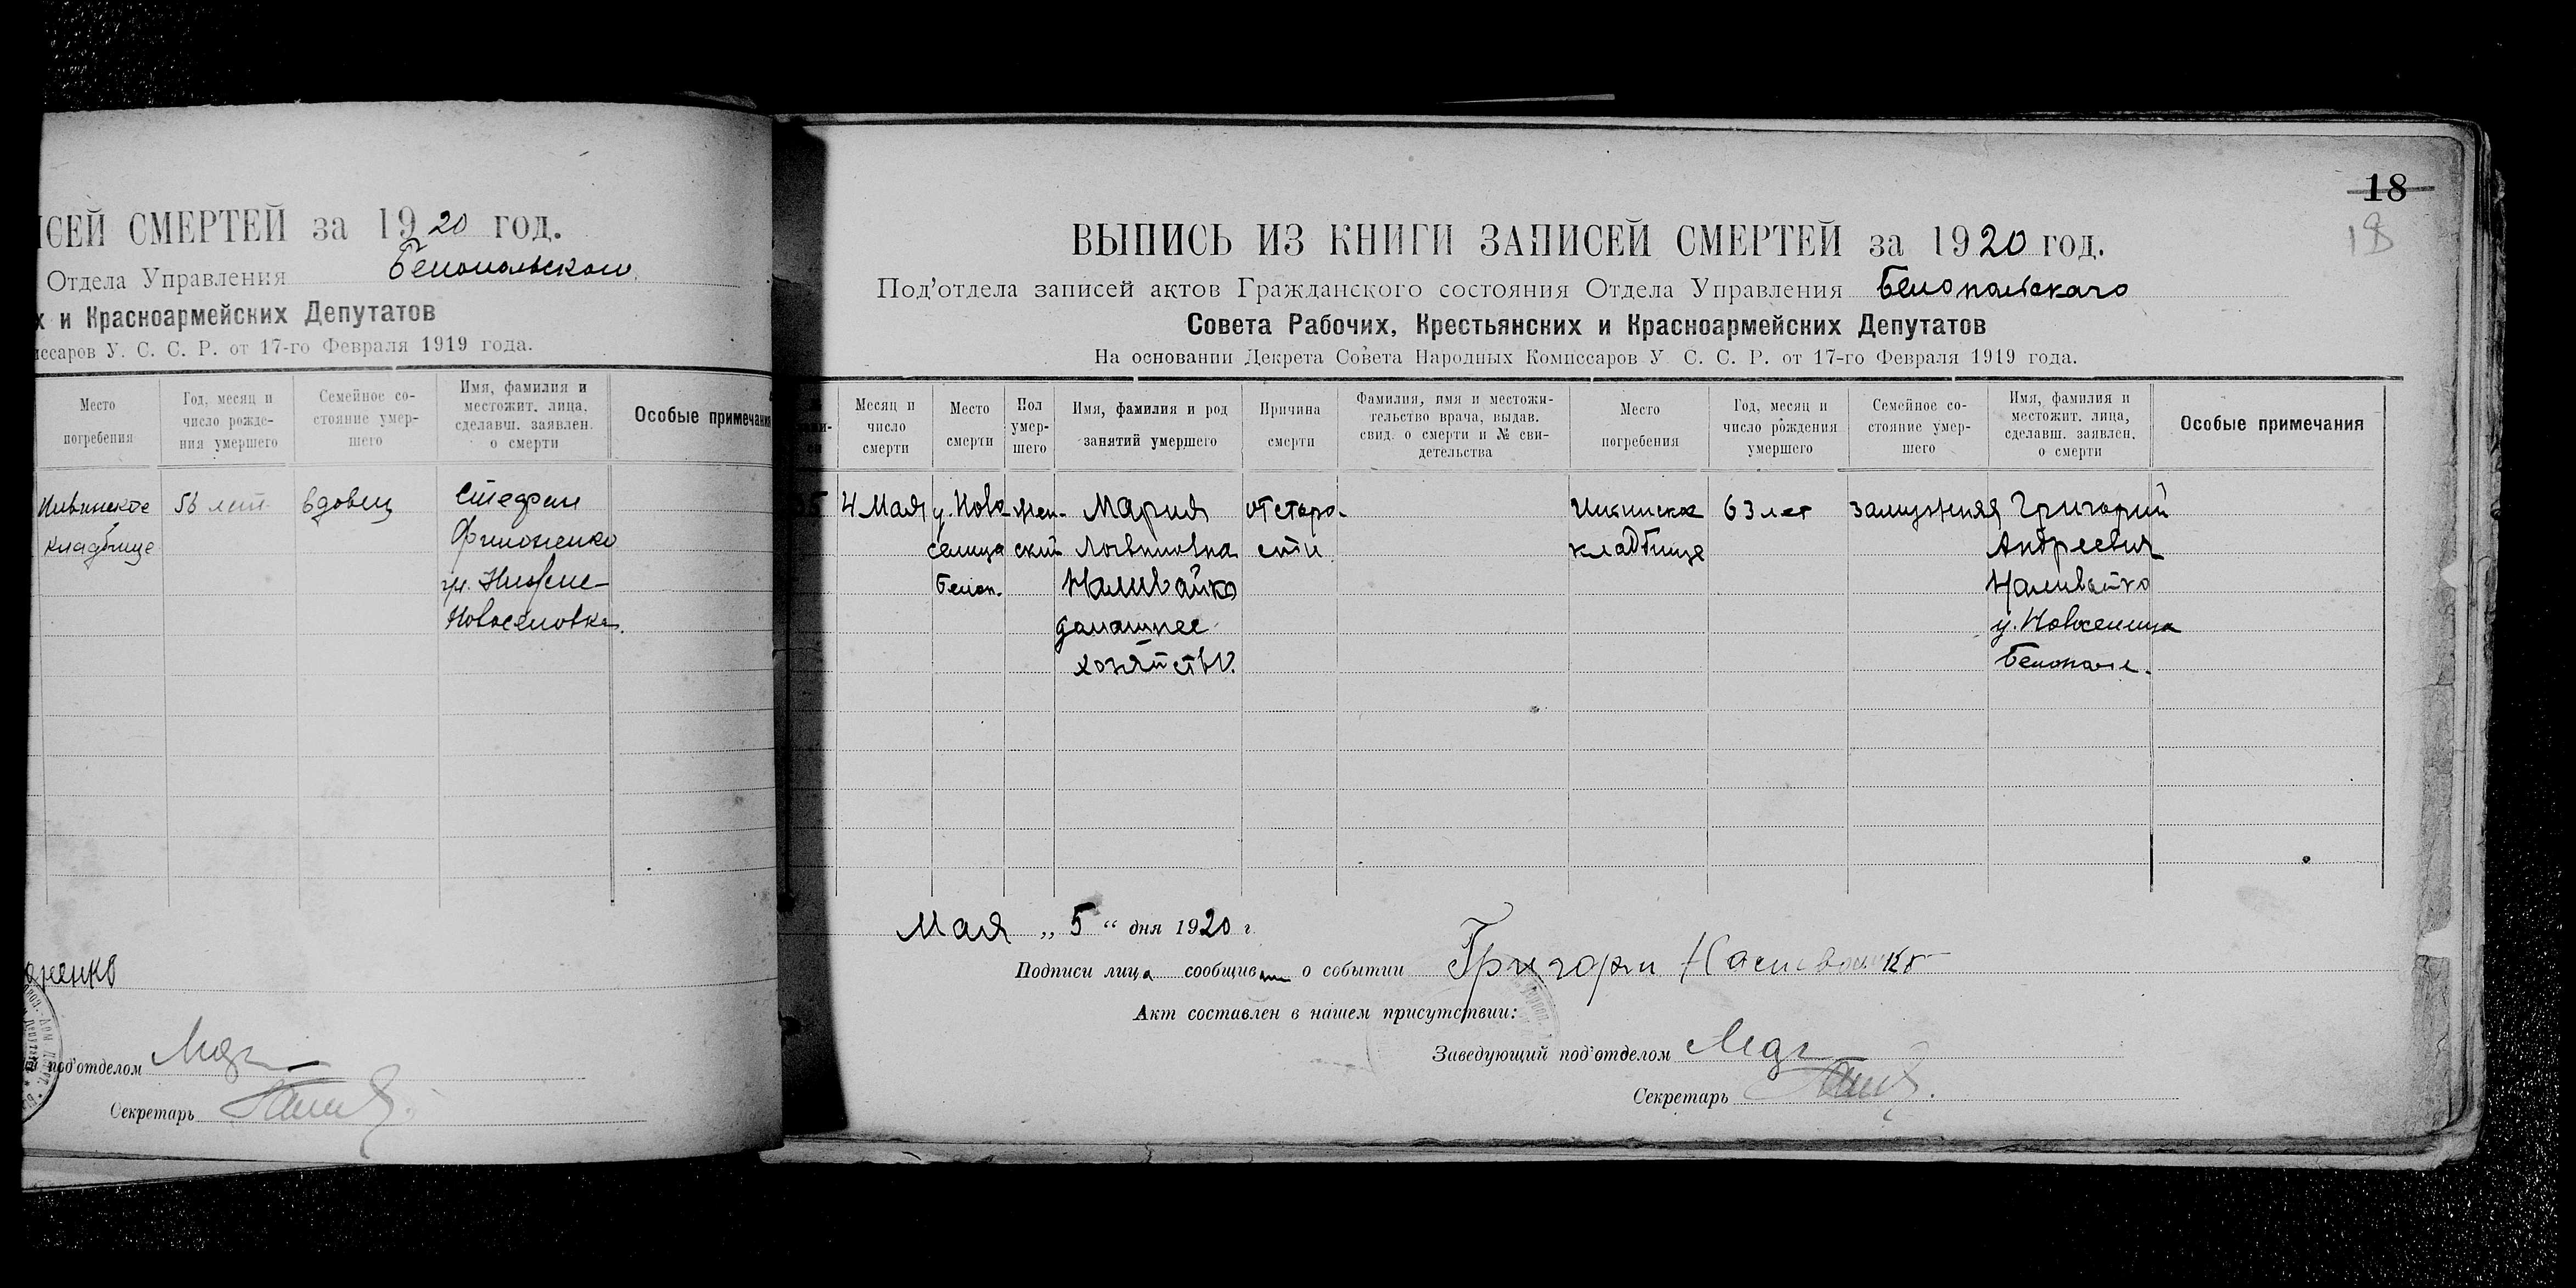 ИСЕЙ СМЕРТЕЙ за 1920 год.
Отдела Управления Белопольского
х и Красноармейских Депутатов
иссаров У. С. С. Р. от 17-го Февраля 1919 года.
Место погребения
Год, месяц и число рожде-ния умершего
Семейное со-стояние умер-шего
Имя, фамилия и местожит. лица, сделавш. заявлен. о смерти
Особые примечания
кладбище
56 лет
вдовец
Стефан
Филоненко
Новоселовка.
оненко
под'отделом
Секретарь
18
18
ВЫПИСЬ ИЗ КНИГИ ЗАПИСЕЙ СМЕРТЕЙ за 1920 год.
Под'отдела записей актов Гражданского состояния Отдела Управления Белопольскаго
Совета Рабочих, Крестьянских и Красноармейских Депутатов
На основании Декрета Совета Народных Комиссаров У. С. С. Р. от 17-го Февраля 1919 года.
Месяц и число смерти
Место смерти
Пол умер-шего
Имя, фамилия и род занятий умершего
Причина смерти
Фамилия, имя и местожи-тельство врача, выдав. свид. о смерти и № сви-детельства
Место погребения
Год, месяц и число рождения умершего
Семейное со-стояние умер-шего
Имя, фамилия и местожит. лица, сделавш. заявлен. о смерти
Особые примечания
4 Мая
у. Ново-
селица
Белоп.
жен-
ский
Мария
Логвиновна
Наливайко
домашнее
хозяйство.
от старо-
сти
кладбище
63 лет
замужняя
Григорий
Андреевич
Наливайко
у. Новоселица
Белополе.
Мая „ 5 “ дня 1920 г.
Подписи лица сообщив о событии Григори Наливайко
Акт составлен в нашем присутствии:
Заведующий под'отделом
Секретарь